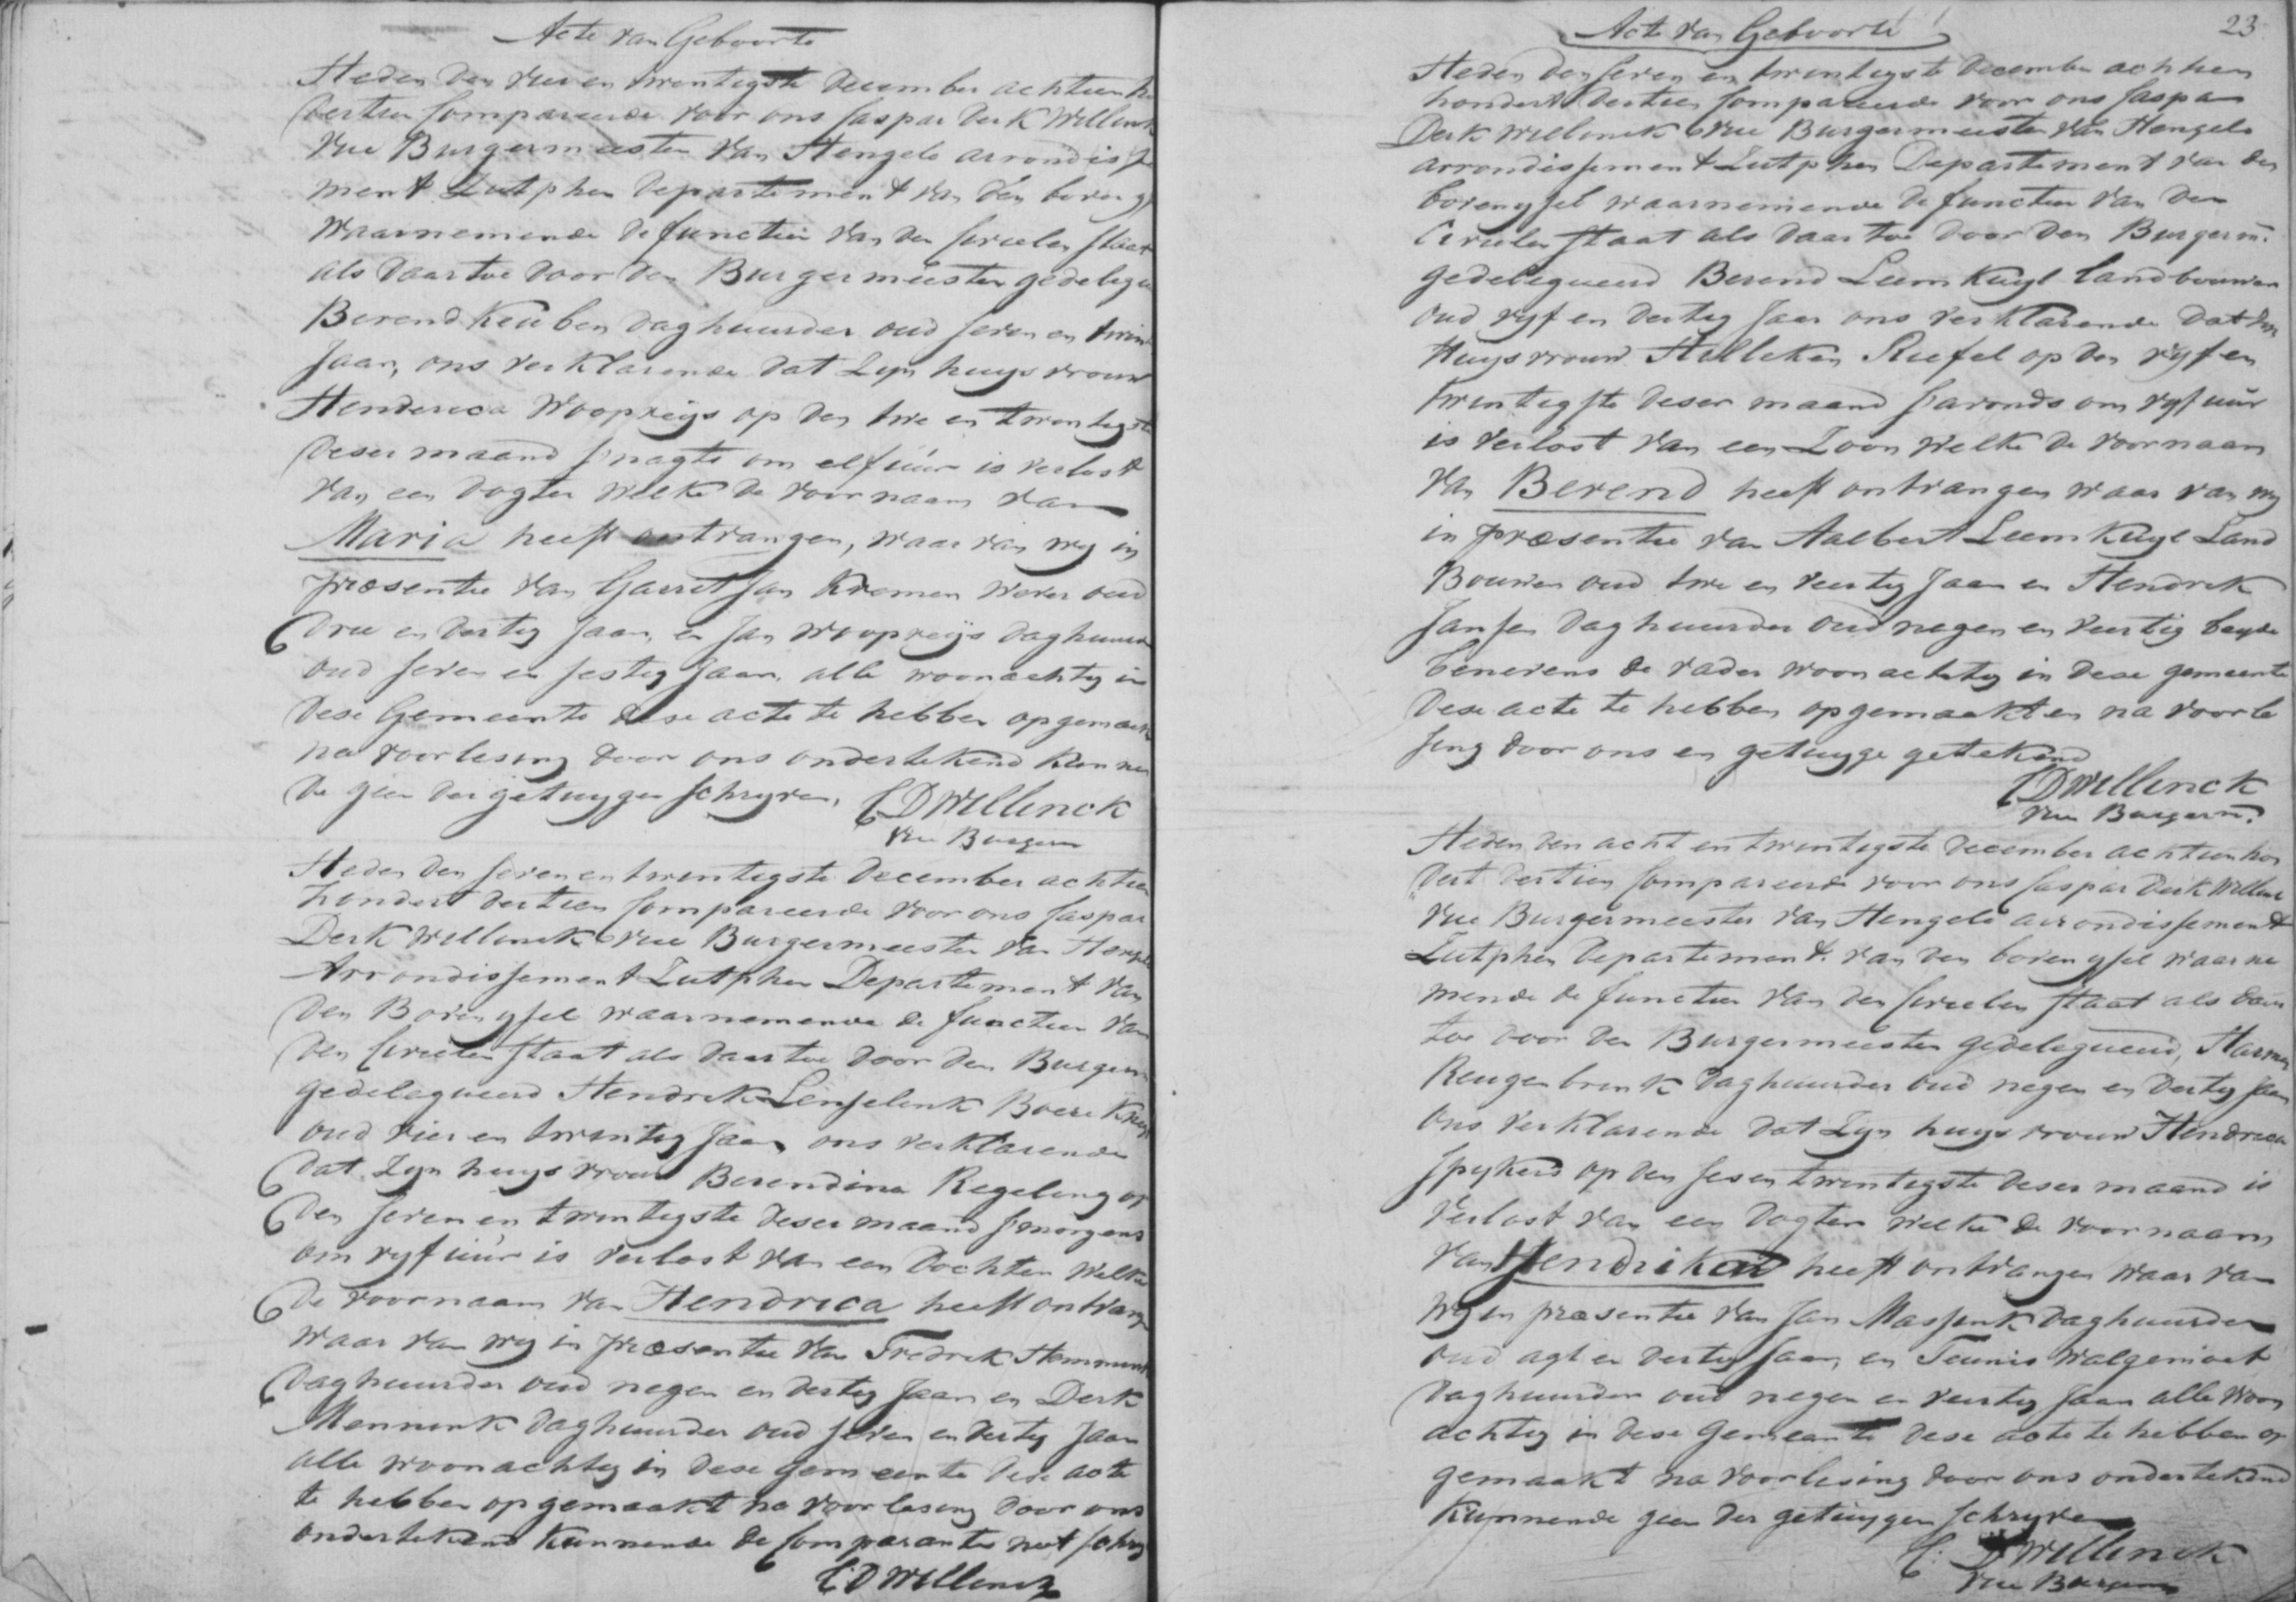 Acte van Geboorte
Heden den vier en twintigste December achtien h
dertien Compareerde voor ons Caspar Derk Willinck
vice Burgermeester van Hengelo arrondisse
ment Zutphen Departement van den boven ys
waarnemende de functien van den Civielen staat
als daartoe door den Burgermeester gedelegu
Berend Keuben daghuurder oud seven en twin
Jaar, ons verklarende dat Zyn huysvrouw
Henderica Woopreijs op den twe en twentigste
deser maand s'nagts om elf uur is verlost
van een dogter welke de voornaam van
Maria heeft ontvangen, waar van wy in
præsentie van Garrit Jan Kremer wever oud
drie en dertig Jaar, en Jan Woopreijs daghuurd
oud seven en sestig Jaar, alle woonachtig in
dese Gemeente dese acte te hebben opgemaakt
na voorlesing door ons ondertekend konnen
de geen der getuygen schryven, C D Willinck
vice Burgerm
Heden den seven en twintigste December achtien
hondert dertien Compareerde voor ons Caspar
Derk Willinck vice Burgermeester van Hengelo
Arrondissement Zutphen Departement van
den Boven yssel waarnemende de functien van
den Civielen staat als daartoe door den Burgerm
gedelegueerd Hendrik Lenselink Boere Kneg
oud vier en twintig Jaar, ons verklarende
dat Zyn huysvrouw Berendina Regeling op
den seven en twintigste deser maand s'morgens
om vyf uur is verlost van een Dochter welke
de voornaam van Hendrica heeft ontvang
waar van wy in præsentie van Fredrik Hemmink
daghuurder oud negen en dertig Jaar en Derk
Mennink daghuurder oud seven en dertig Jaar
alle woonachtig in dese gemeente dese acte
te hebben opgemaakt na voorlesing door ons
ondertekend kunnende de Comparanten niet schry
C D Willinck
23
Acte van Geboorte
Heden den seven en twintigste December achtien
hondert dertien Compareerde voor ons Caspar
Derk Willinck vice Burgermeester van Hengelo
arrondissement Zutphen Departement van den
bovenyssel waarnemende de functien van den
Civielen staat als daartoe door den Burgerm.
gedelegueerd Berend Leemkuyl landbouwer
oud vyf en dertig Jaar ons verklarende dat zyn
Huysvrouw Hilleken Riefel op den vyf en
twintigste deser maand s'avonds om vyf uur
is verlost van een Zoon welke de voornaam
van Berend heeft ontvangen waar van wy
in præsentie van Aalbert Leemkuyl Land
Bouwer oud twe en veertig Jaar en Hendrik
Jansen daghuurder oud negen en veertig beyde
benevens de vader woonachtig in dese gemeente
dese acte te hebben opgemaakt en na voorle
sing door ons en getuyge getekend
C D Willinck
vice Burgerm.
Heden den acht en twintigste December achtien hon
dert dertien Compareerde voor ons Caspar Derk Willinck
vice Burgermeester van Hengelo arrondissement
Zutphen Departement van den boven yssel waarne
mende de functien van den Civielen staat als daar
toe door den Burgermeester gedelegueerd, Harmen
Reugenbrink daghuurder oud negen en dertig Jaar
ons verklarende dat Zyn huysvrouw Hendrica
Spykers op den ses en twintigste deser maand is
verlost van een dogter welke de voornaam
van Hendrika heeft ontvangen waar van
wy in præsentie van Jan Massink daghuurder
oud agt en dertig Jaar, en Teunis Walgemoet
daghuurder oud negen en veertig Jaar alle woon
achtig in dese gemeente dese acte te hebben op
gemaakt na voorlesing door ons ondertekend
kunnende geen der getuygen schryven
C: D Willinck
vice Burgerm